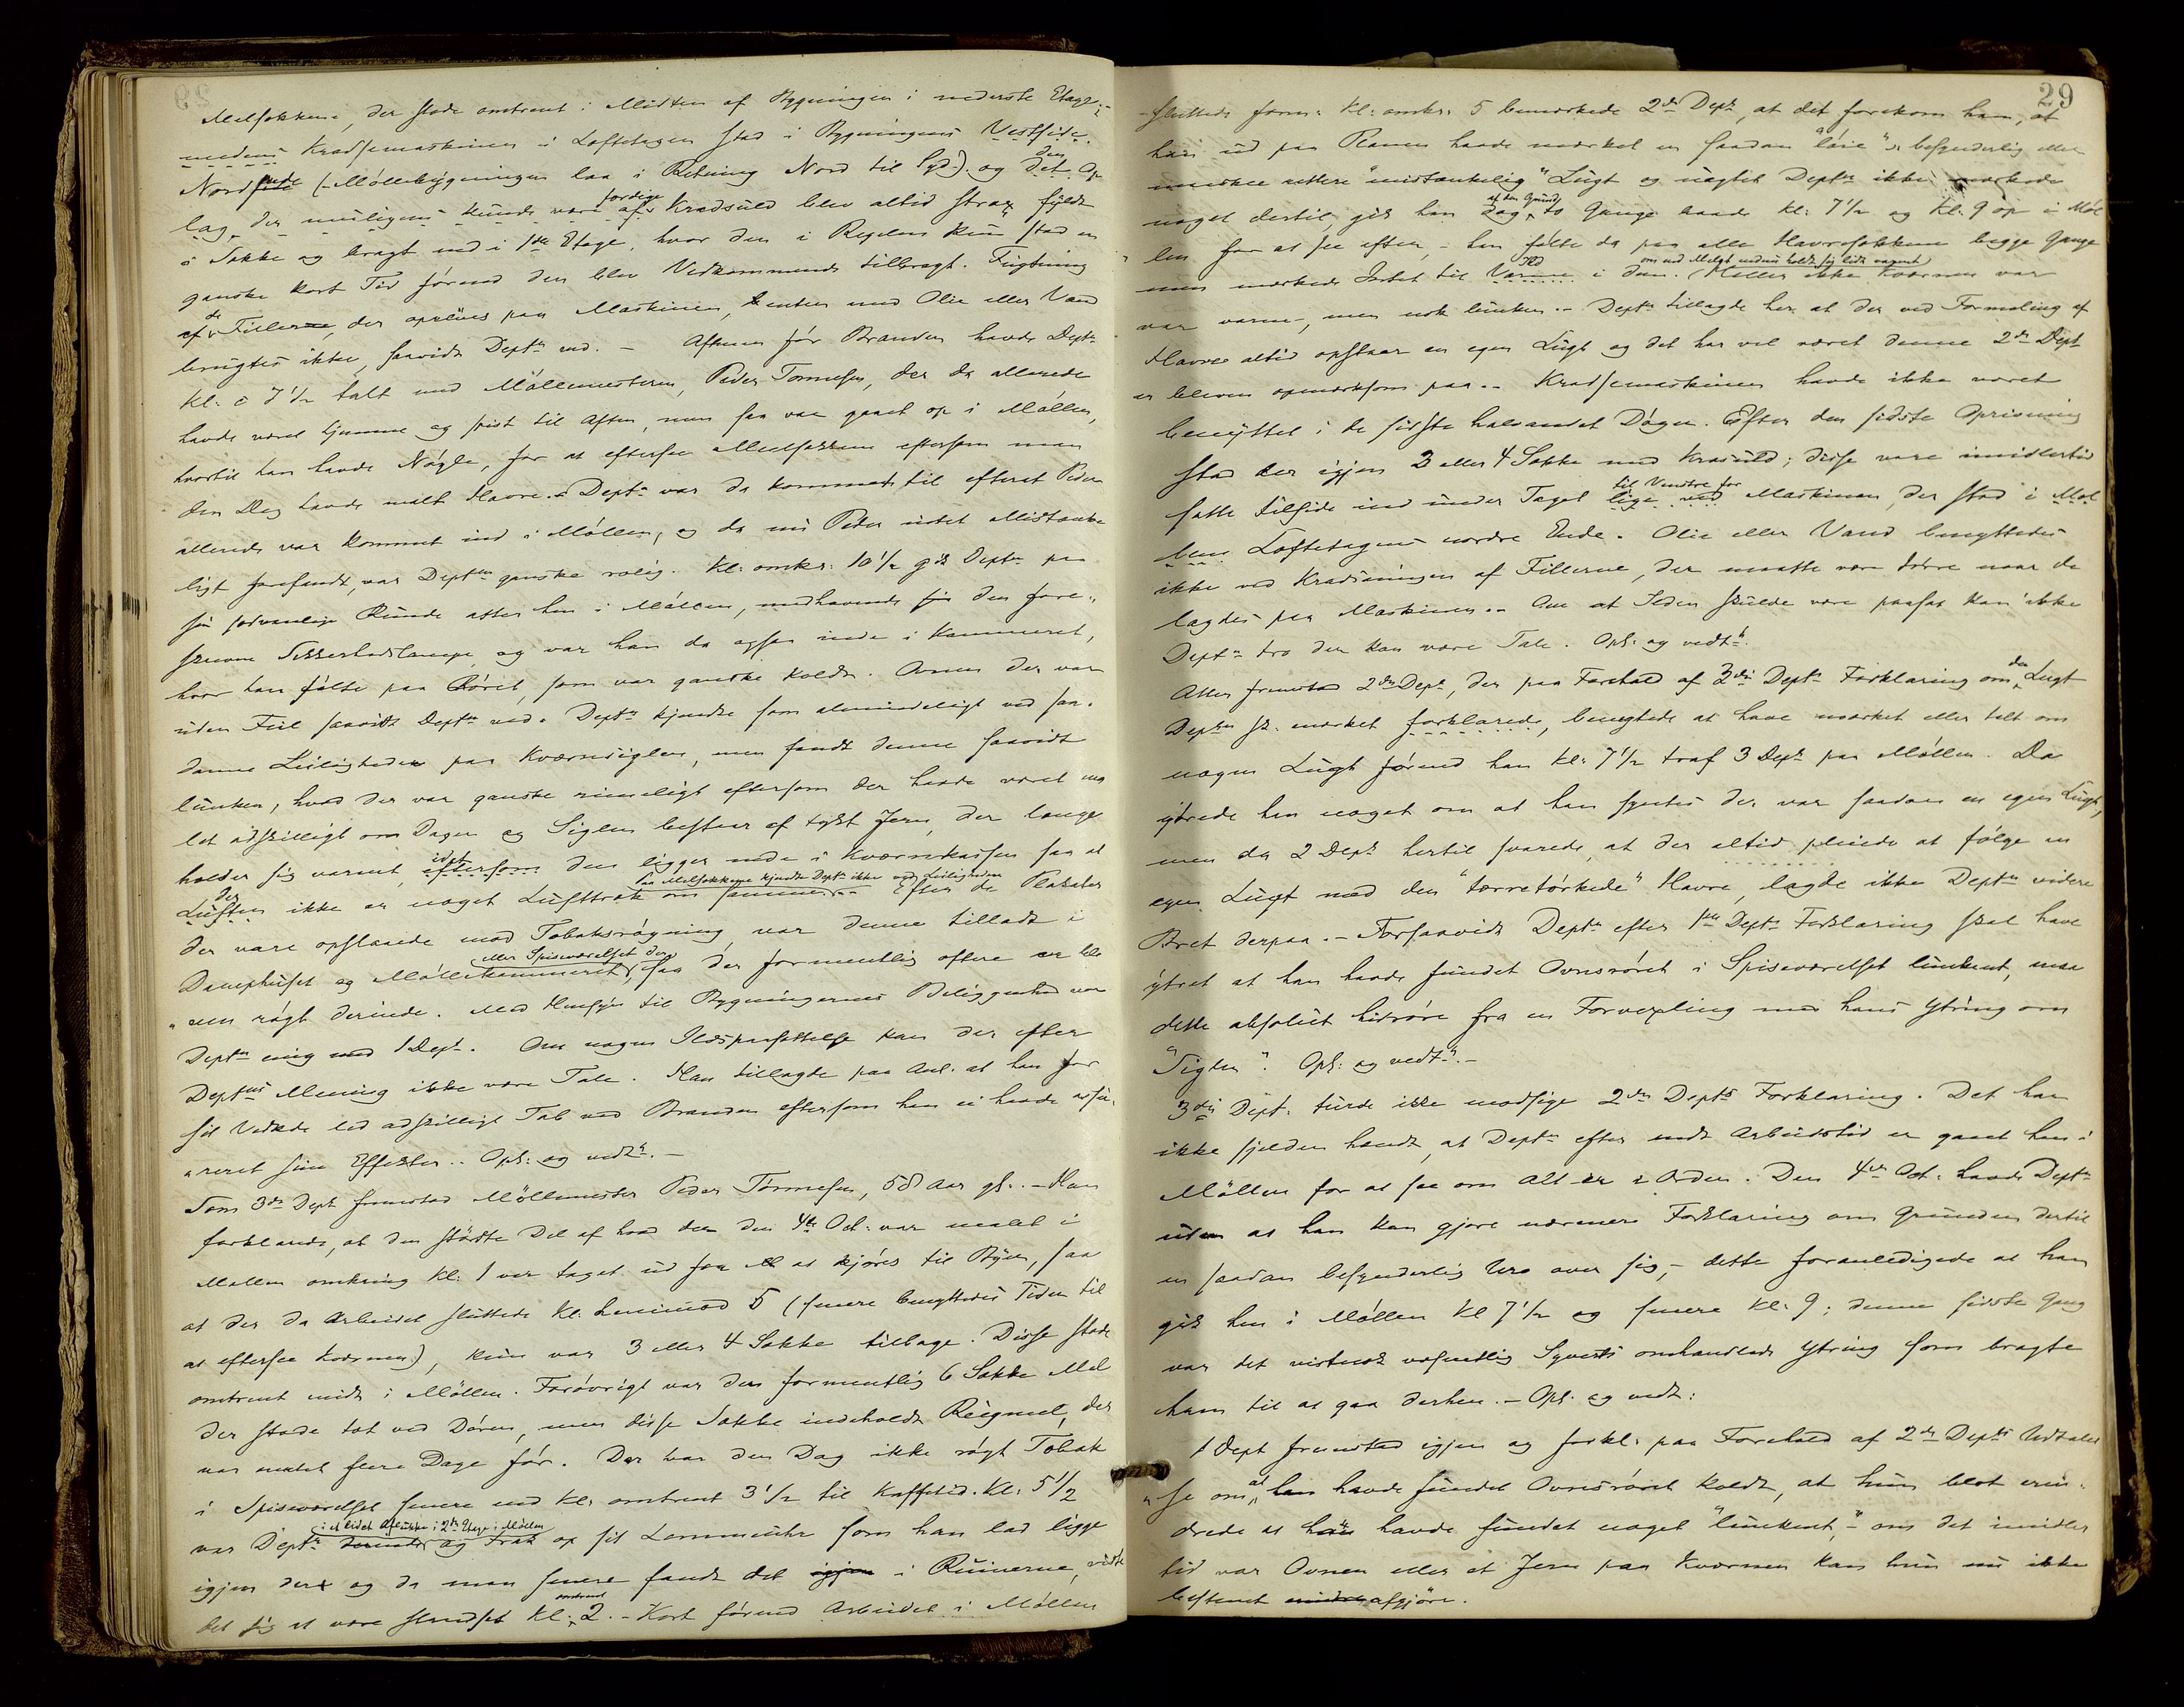 Melsækkene, der stode omtrent i Midten af Bygningen i nederste Etage;-
medens Kradsemaskinen i Loftetagen stod i Bygningens Vestside.
Nordende (-Møllebygningen laa i Retning Nord til Syd-). og det den Op
lag, der muligens kunde være af færdige Kradsuld blev altid strax fyldt
i Sække og bragt ned i 1ste Etage, hvor den i Regelen kun stod en
ganske kort Tid førend den blev Vedkommende tilbragt. Fugtning
af de Fillerne, der oprives paa Maskinen, enten med Olie eller Vand
brugtes ikke, saavidt Deptn ved. - Aftenen før Branden havde Deptn
Kl: c 7 1/2 talt med Møllemesteren, Peder Tønnesen, der da allerede
havde været hjemme og spist til Aften, men saa var gaaet op i Møllen,
hvortil han havde Nøgle, for at eftersee Melsækkene eftersom man
den Dag havde malt Havre. - Deptn var da kommet til efterat Peder
allerede var kommet ind i Møllen, og da nu Peder intet Mistænke
ligt forefandt, var Deptn ganske rolig. Kl: omkr: 10 1/2 gik Deptn paa
sin sedvanlige Runde atter hen i Møllen, medhavende den fore-
skrevne Sikkerhedslampe, og var han da ogsaa inde i Kammeret,
hvor han følte paa Røret, som var ganske koldt. Ovnen der var
uden Feil saavidt Deptn ved. Deptn kjendte som almindeligt ved saa-
danne Leiligheder paa Kværnsiglen, men fandt denne saavidt
lunken, hvad der var ganske rimeligt eftersom der havde været ma
let adskilligt om Dagen og Siglen bestaar af tykt Jern, der længe
holder sig varmt, eftersom idet den ligger nede i Kværnkassen saa at
Luften der ikke er noget Lufttræk om sammen. Paa Melsækkene kjendte Deptn ikke ved Leiligheden. Efter de Plakater
der vare opslaaede mod Tobaksrøgning, var denne tilladt i
Damphuset og Møllekammeret, eller Spiseværelset der, saa der formentlig oftere er ble
"ven røgt derinde. Med Hensyn til Bygningernes Beliggenhed var
Deptn enig med 1 Dept. Om nogen Ildspaasættelse kan der efter
Deptns Mening ikke være Tale. Han tillagde paa Anl. at han for
sit Vedkde led adskilligt Tab ved Branden eftersom han ei havde assu-
"reret sine Effekter. - Opl: og vedt. -
Som 3de Dept fremstod Møllemester Peder Tønnesen, 58 Aar gl.. - Han
forklarede, at den største Del af hvad der den 4de Oct: var malet i
Møllen omkring Kl: 1 var taget ud for at kjøres til Byen, saa
at der da Arbeidet sluttede Kl. henimod 5 (senere benyttedes Tiden til
at eftersee Kværnen), kun var 3 eller 4 Sække tilbage. Disse stode
omtrent midt i Møllen. Forøvrigt var der formentlig 6 Sække Mel
der stode tæt ved Døren, men disse Sække indeholdt Rugmel, der
var malet flere Dage før. Der var den Dag ikke røgt Tobak
i Spiseværelset senere end Kl: omtrent 3 1/2 til Kaffetid. Kl: 5 1/2
var Deptn i et lidet Aflukke i 2den Etage i Møllen og trak op sit Lommeuhr som han lod ligge
igjen der og da man senere fandt det igjen i Ruinerne, viste
det sig at være standset Kl: omtrent 2. - Kort førend Arbeidet i Møllen
29
sluttede ... Kl: omkr: 5 bemærkede 2den Dept, at det forekom ham, at
han ud paa Ramen havde mærket en saadan "løie" besynderlig eller
maaske rettere "mistænkelig" Lugt og uagtet Deptn ikke mærkede
noget dertil, gik han dog af den Grund to Gange baade Kl: 7 1/2 og Kl: 9 op i Møl
len for at see efter, - han følte da paa alle Havresækkene begge Gange
men mærkede Intet til Varme Ild i dem. (om end Melet endnu holdt sig lidt varmt) Heller ikke Kværnen var
var varm, men nok lunken. - Deptn tillagde her at der ved Formaling af
Havre altid opstaar en egen Lugt og det har vel været denne 2den Dept
er bleven opmærksom paa. - Kradsemaskinen havde ikke været
benyttet i de sidste halvandet Døgn. Efter den sidste Oprivning
stod der igjen 3 eller 4 Sække med Krasuld; disse vare imidlertid
satte tilside ind under Taget lige ved til Venstre for Maskinen, der stod i Møl
lens Loftetages nordre Ende. Olie eller Vand benyttedes
ikke ved Kradsningen af Fillerne, der maatte være tørre naar de
lagdes paa Maskinen. - Om at Ilden skulde være paasat kan ikke
Deptn tro der kan være Tale. Opl: og vedt.
Atter fremstod 2den Dept, der paa Forehold af 3die Depts Forklaring om den Lugt
Deptn sk. mærket forklarede, benegtede at have mærket eller talt om
nogen Lugt førend han Kl: 7 1/2 traf 3 Dept paa Møllen. Da
ytrede han noget om at han syntes der var saadan en egen Lugt,
men da 2 Dept hertil svarede, at der altid pleiede at følge en
egen Lugt med den "tørretørkede" Havre, lagde ikke Deptn videre
Bret derpaa. - Forsaavidt Deptn efter 1ste Depts Forklaring skal have
ytret at han havde fundet Ovnsrøret i Spiseværelset lunkent, maa
dette absolut hidrøre fra en Forvexling med hans Ytring om
"Siglen". Opl: og vedt. -
3die Dept: turde ikke modsige 2den Depts Forklaring. Det har
ikke sjelden hændt, at Deptn efter endt Arbeidstid er gaaet hen i
Møllen for at see om Alt er i Orden. Den 4de Oct: havde Deptn
uden at han kan gjøre nærmere Forklaring om Grunden dertil
en saadan besynderlig Uro over sig, - dette foranledigede at han
gik hen i Møllen Kl 7 1/2 og senere Kl: 9; denne sidste Gang
var det vistnok væsentlig Syverts omhandlede Ytring som bragte
ham til at gaa derhen. - Opl. og vedt:
1 Dept fremstod igjen og forkl: paa Forehold af 2den Depts Udtalel
"se om at han havde fundet Ovnsrøret koldt, at hun blot erin-
drede at han havde fundet noget "lunkent", - om det imidler
tid var Ovnen eller et Jern paa Kværnen kan hun nu ikke
bestemt afgjøre.